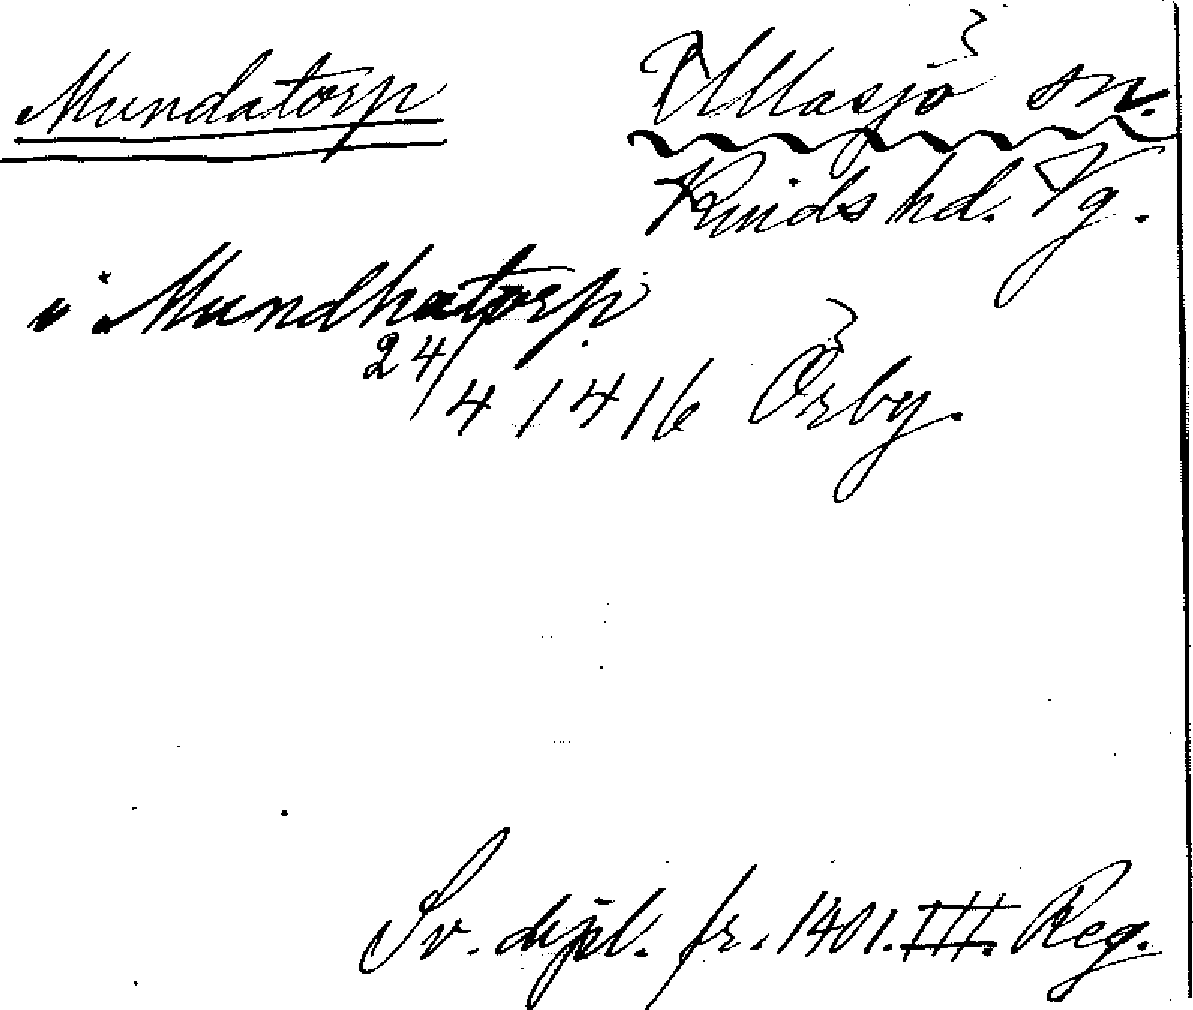 Mundatorp Ullasjö sn.
Kinds hd. Vg.
"i Mundhatorp
24/4 1416 Örby.
Sv. dipl. fr. 1401. III. Reg.